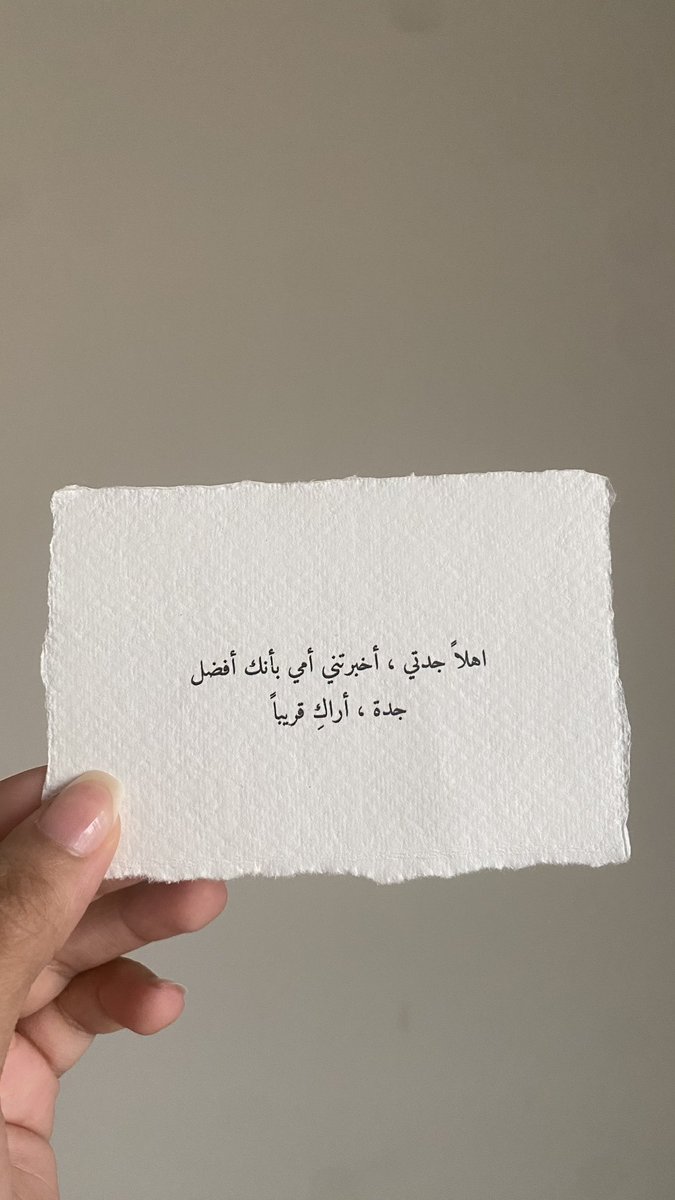 اهلاً جدتي ، أخبرتني أمي بأنك أفضل
جدة ، أراكِ قريباً